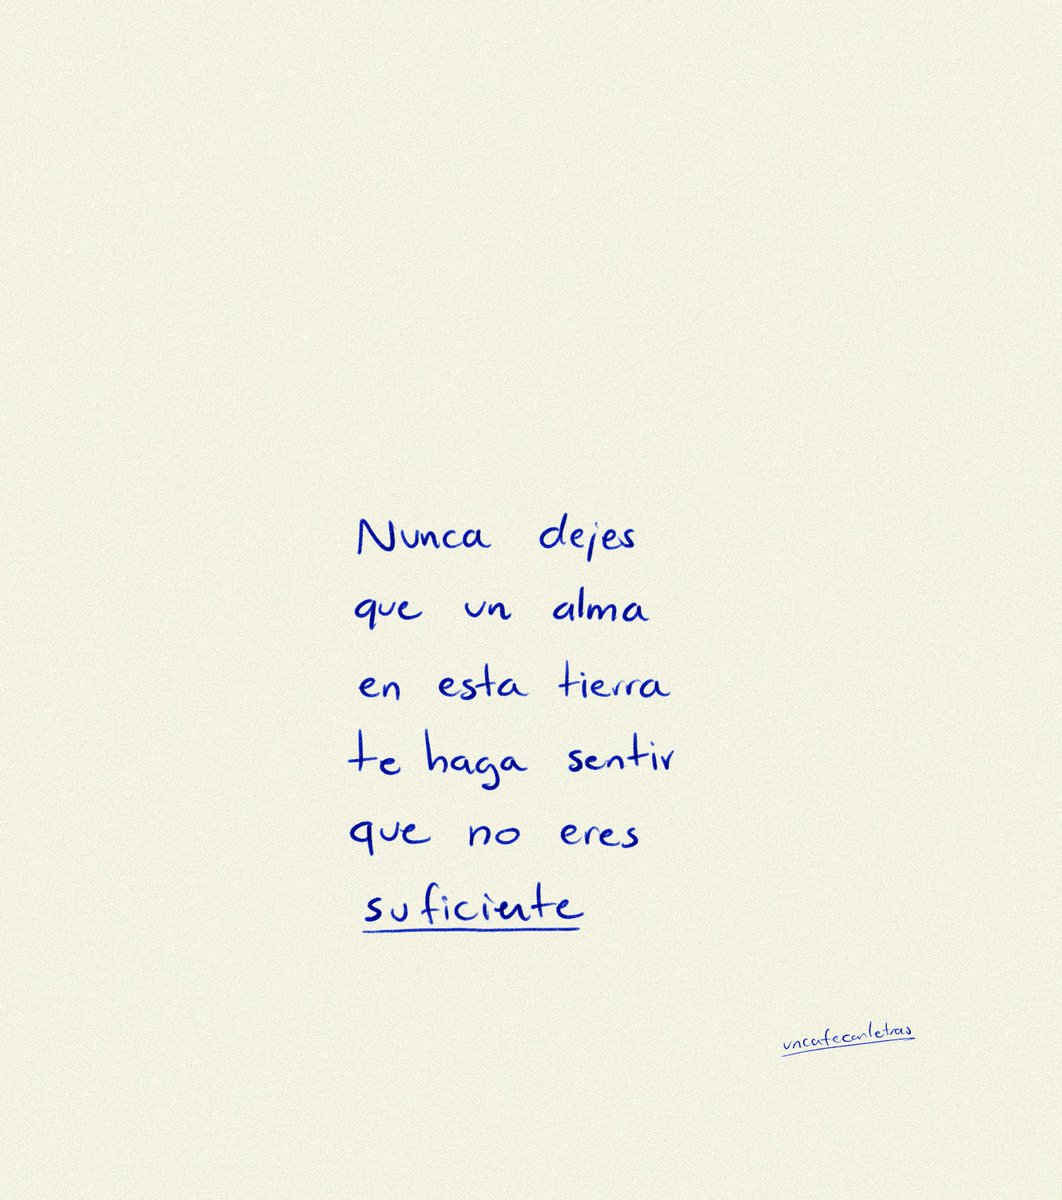 Nunca dejes
que un alma
en esta tierra
te haga sentir
que no eres
suficiente
uncafeconletras